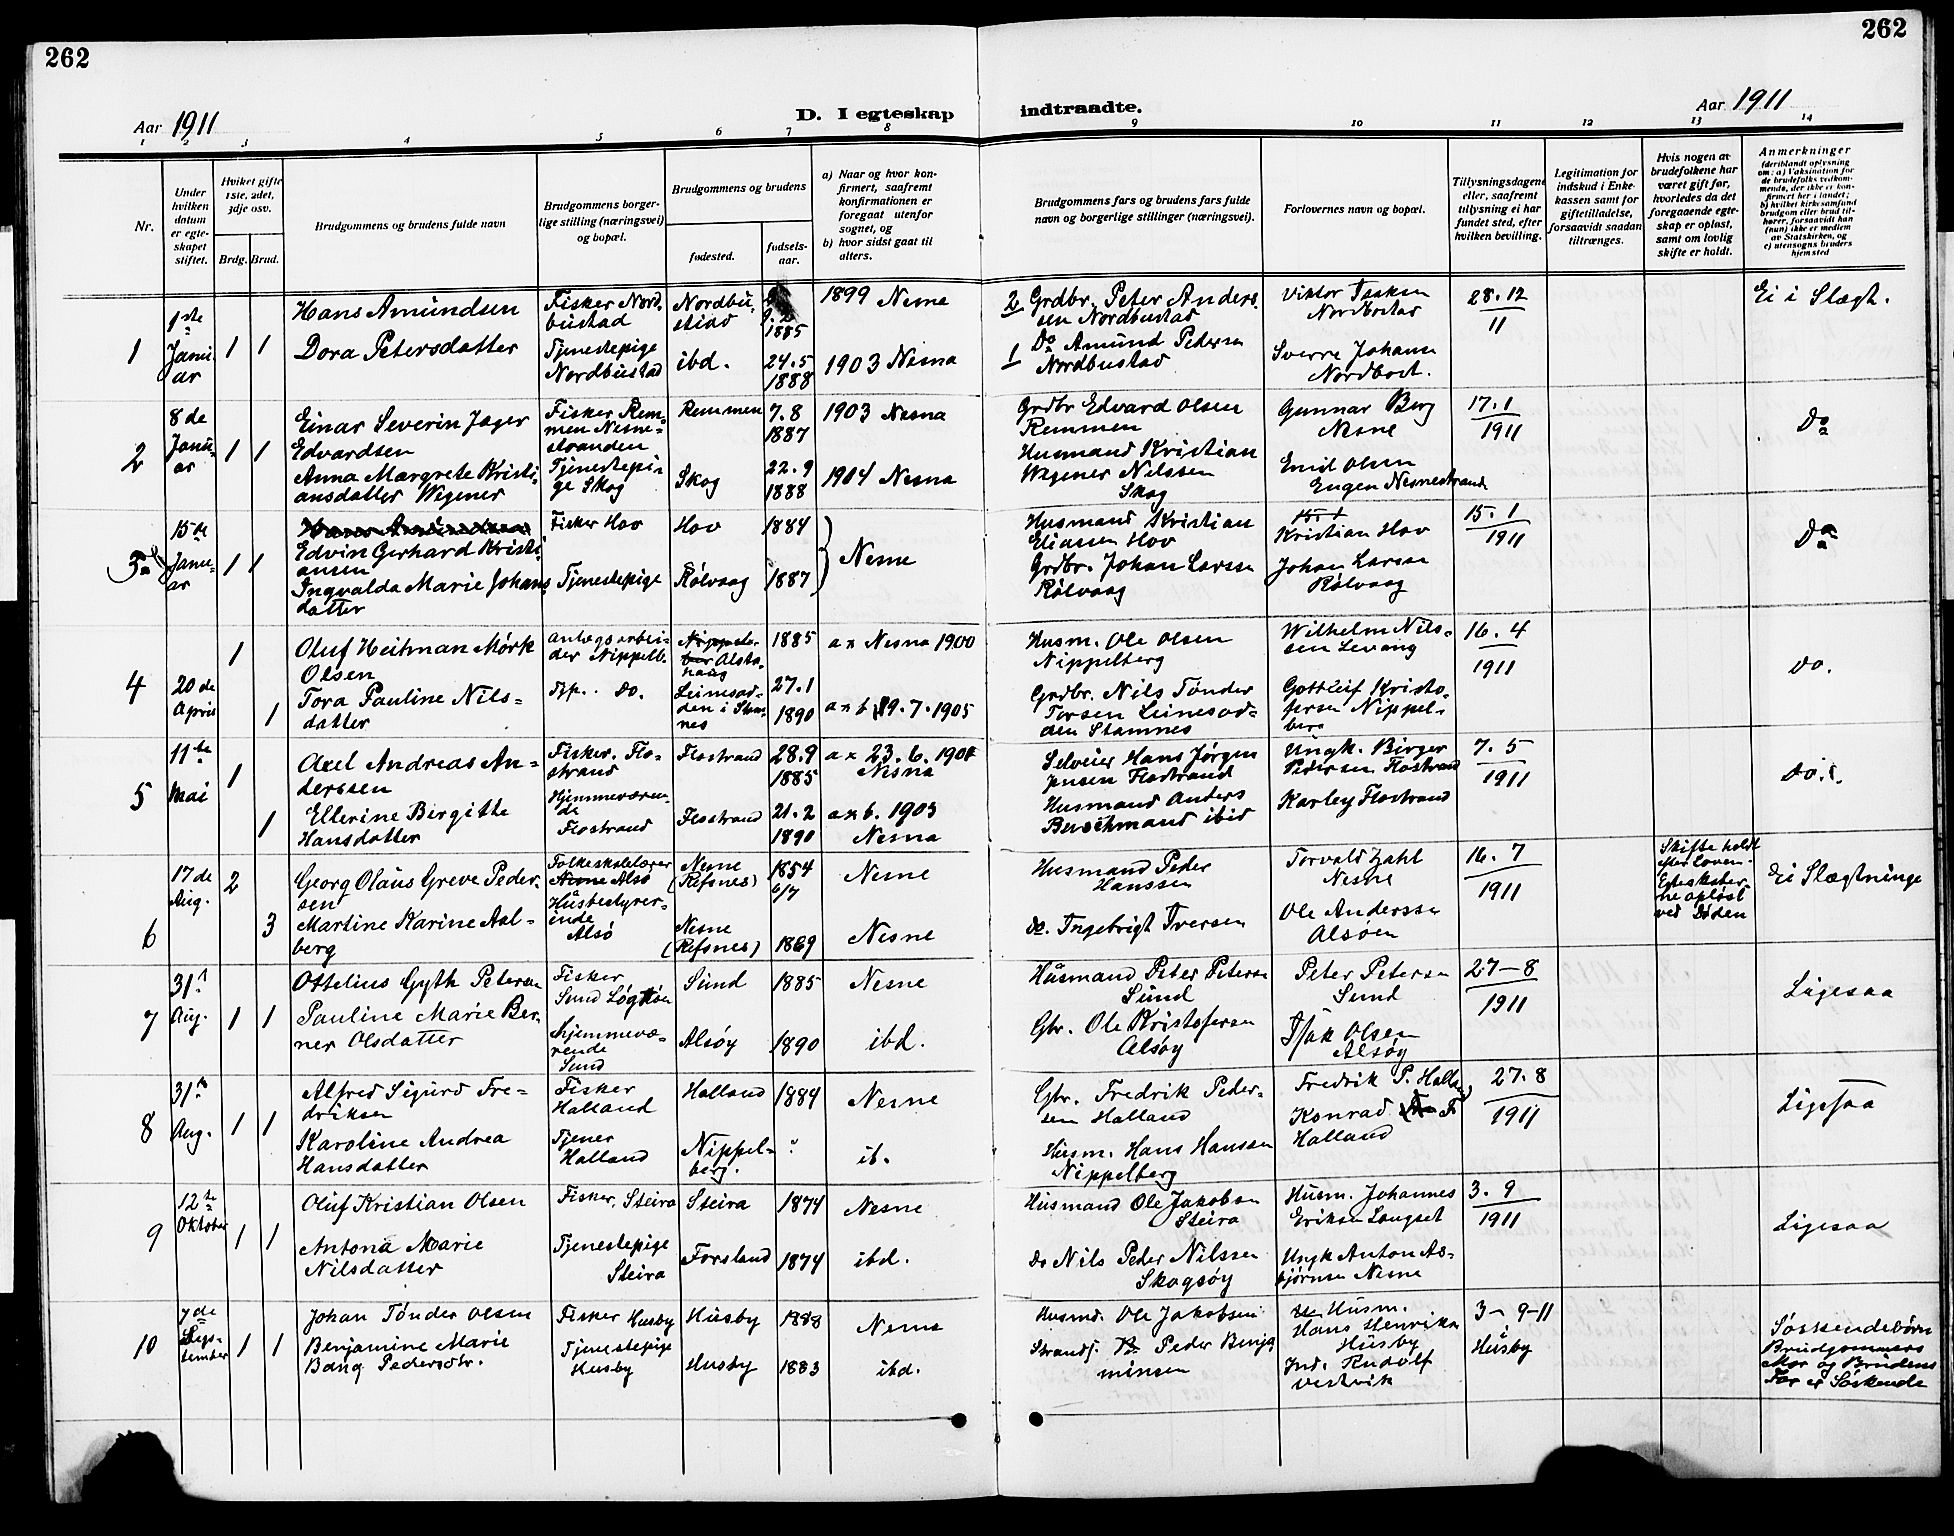 262
262
Aar 1911
D. I egteskap
indtraadte.
Aar 1911
1 2 3 4 5 6 7 8 9 10 11 12 13 14
Nr.
Under hvilken datum er egteskapet stiftet.
Hviket gifte 1ste, 2det, 3dje osv.
Brdg. Brud.
Brudgommens og brudens fulde navn
Brudgommens borgerlige stilling (næringsvei) og bopæl.
Brudgommens og brudens
fødested.
fødselsaar.
a) Naar og hvor konfirmert, saafremt konfirmationen er foregaat utenfor sognet, og
b) hvor sidst gaat til alters.
Brudgommens fars og brudens fars fulde navn og borgerlige stillinger (næringsvei).
Forlovernes navn og bopæl.
Tillysningsdagene eller, saafremt tillysning ei har fundet sted, efter hvilken bevilling.
Legitimation for indskud i Enkekassen samt for giftetilladelse, forsaavidt saadan tiltrænges.
Hvis nogen av brudefolkene har været gift før, hvorledes da det foregaaende egteskap er opløst, samt om lovlig skifte er holdt.
Anmerkninger
(deriblandt oplysning om: a) Vaksination for de brudefolks vedkommende, der ikke er konfirmert her i landet; b) hvilket kirkesamfund brudgom eller brud tilhører, forsaavidt han (hun) ikke er medlem av Statskirken, og c) utensogns bruders hjemsted
1
1ste Januar
1 1
Hans Amundsen
Dora Petersdatter
Fisker Nordbustad
Tjenestepige Nordbustad
Nordbustad
ibd.
9.2 1885
24.5 1888
1899 Nesna
1903 Nesna
2 Grdbr. Peter Anderssen Nordbustad
1 Do Amund Pedersen Nordbustad
Viktor Isaksen Nordbostad
Sverre Johans Nordbost.
28.12
11
Ei i Slægt.
2
8de Januar
1 1
Einar Severin Jæger Edvardsen
Anna Margrete Kristiansdatter Wegener
Fisker Remmen Nesnestranden
Tjenestepige Skog
Remmen
Skog
7.8 1887
22.9 1888
1903 Nesna
1904 Nesna
Grdbr Edvard Olsen Remmen
Husmand Kristian Wegener Nilssen Skog
Gunnar Berg Nesne
Emil Olsen
Eugen Nesnestrand
17.1
1911
Do
3
15de Januar
1 1
Hans Amundsen
Edvin Gerhard Kristiansen
Ingvalda Marie Johansdatter
Fisker Hov
Tjenestepige
Hov
Rølvaag
1884
1887
Nesne
Husmand Kristian Eliassen Hov
Grdbr. Johan Larssen Rølvaag
15.1
Kristian Hov
Johan Larsen Rølvaag
15.1
1911
Do
4
20de April
1
1
Oluf Heitman Mørk Olsen
Tora Pauline Nilsdatter
anlægsarbeider Nippelb.
Tjp. do.
Alstahaug
Leinesodden i Stamnes
1885
27.1 1890
a x Nesna 1900
a x b 19.7.1905
Husm. Ole Olsen Nippelberg
Grdbr. Nils Tønder Torsen Leinesodden Stamnes
Wilhelm Nilssen Levang
Gottleif Kristofersen Nippelberg
16.4
1911
do.
5
11te Mai
1
1
Axel Andreas Anderssen
Ellerine Bergitte Hansdatter
Fisker. Flostrand
Hjemmeværende Flostrand
Flostrand
Flostrand
28.9 1885
21.2 1890
a x 23.6.1901 Nesna
a x b. 1905 Nesna
Selveier Hans Jørgen Jensen Flostrand
Husmand Anders Buschmand ibid
Ungk. Birger Pedersen Flostrand
Karley Flostrand
7.5
1911
do.
6
17de Aug.
2
3
Georg Olaus Greve Pedersen
Martine Karine Aalberg
Folkeskolelærer Nesne Alsø
Husbestyrerinde Alsø
Nesne (Refsnes)
Nesne (Refsnes)
1854 6/7
1869
Nesne
Nesne
Husmand Peder Hanssen
do. Ingebrigt Iversen
Torvald Zahl Nesne
Ole Anderssen Alsøen
16.7
1911
Skifte holdt efter Loven. Egteskaberne opløst ved Døden
Ei Slægtninge
7
31te Aug.
1 1
Ottelius Gyth Petersen
Pauline Marie Berner Olsdatter
Fisker Sund Løgtøen
hjemmeværende Sund
Sund
Alsøy
1885
1890
Nesne
ibd.
Husmand Peter Petersen Sund
Gbr. Ole Kristofersen Alsøy
Peter Petersen Sund
Isak Olsen Alsøy
27-8
1911
Ligesaa
8
31te Aug.
1 1
Alfred Sigurd Fredriksen
Karoline Andrea Hansdatter
Fisker Halland
Tjener Halland
Halland
Nippelberg.
1884
"
Nesne
ib.
Gbr. Fredrik Pedersen Halland
Husm. Hans Hanssen Nippelberg
Fredrik P. Halland
Konrad F Halland
27.8
1911
Ligesaa
9
12te Oktober
1 1
Oluf Kristian Olsen
Antona Marie Nilsdatter
Fisker, Steira
Tjenestepige Steira
Steira
Forsland
1874
1874
Nesne
ibd.
Husmand Ole Jakobsen Steira
Do Nils Peder Nilssen Skogsøy
Husm. Johannes Eriksen Langset
Ungk Anton Asbjørnsen Nesne
3.9
1911
Ligesaa
10
7de September
1 1
Johan Tønder Olsen
Benjamine Marie Bang Pedersdtr.
Fisker Husby
Tjenestepige Husby
Husby
Husby
1888
1883
Nesne
ibd.
Husmd. Ole Jakobsen
Strandf. Peder Benjaminsen
Husm. Hans Henriksen Husby
Ind. Rudolf Vestvik
3-9-11
Husby
Søskendebørn
Brudgommens Mor og Brudens Far er Søskende